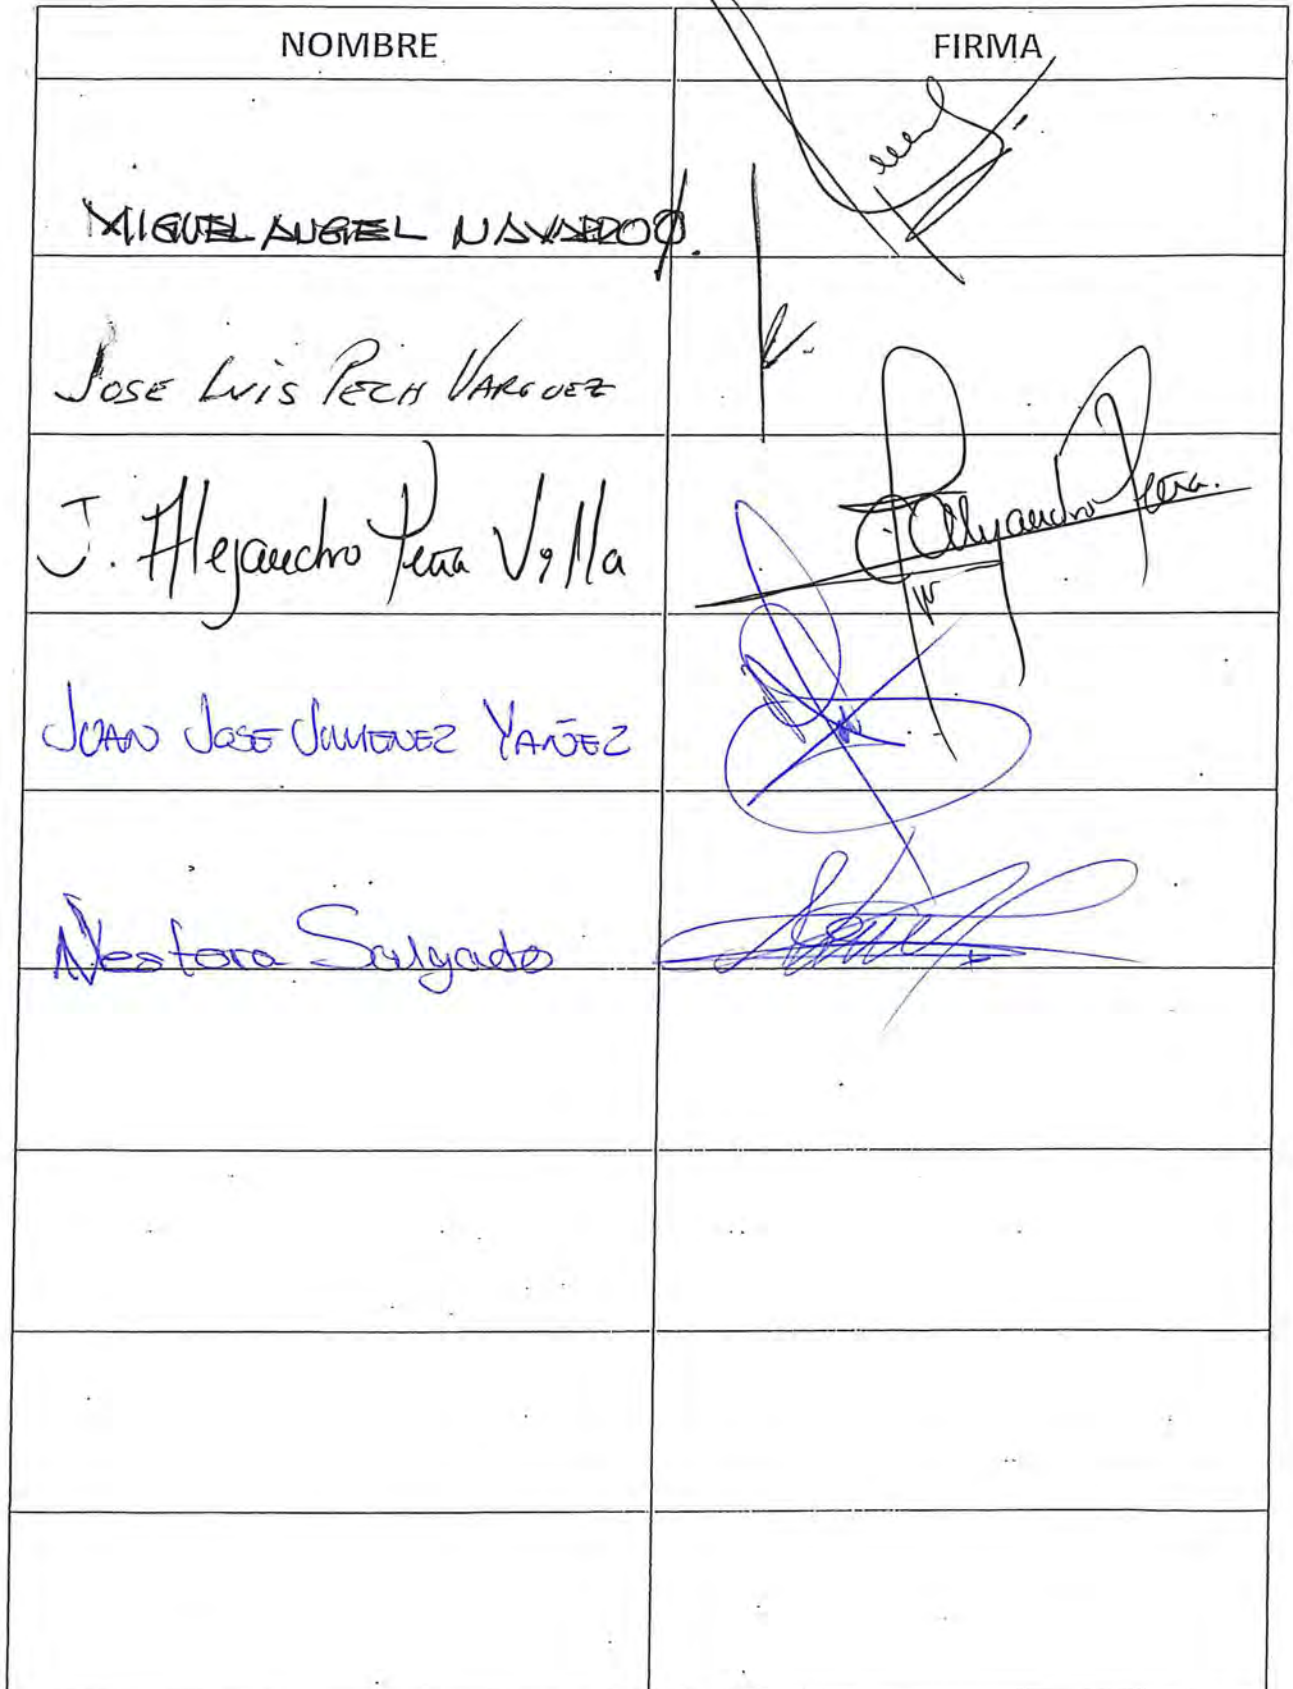 NOMBRE FIRMA
MIGUEL ANGEL NAVARRO Q.
JOSE LUIS PECH VARGUEZ
J. Alejandro Peña Villa J. Alejandro Peña.
JUAN JOSE JIMENEZ YAÑEZ
Nestora Salgado